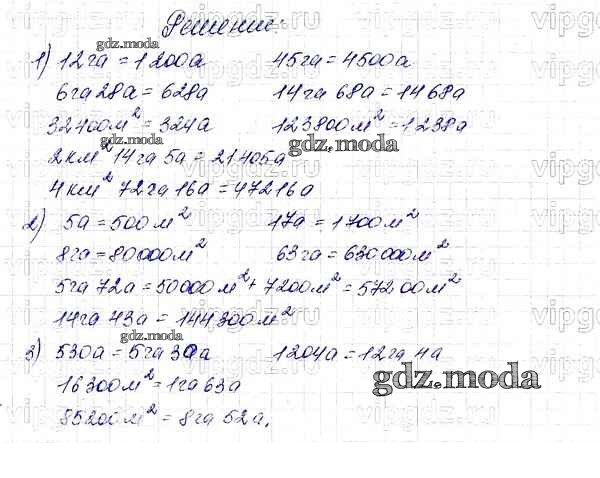 Решение:
1) 12га = 1200а 45га = 4500а
6га 28а = 628а 14га 68а = 1468а
32400м² = 324а 123800м² = 1238а
2км² 14га 5а = 21405а
4км² 72га 16а = 47216а
2) 5а = 500м² 17а = 1700м²
8га = 80000м² 63га = 630000м²
5га 72а = 50000м² + 7200м² = 57200м²
14га 43а = 144300м²
3) 530а = 5га 30а 1204а = 12га 4а
16300м² = 1га 63а
85200м² = 8га 52а.
gdz.moda
gdz.moda
gdz.moda
gdz.moda
gdz.moda
gdz.moda
vipgdz.ru